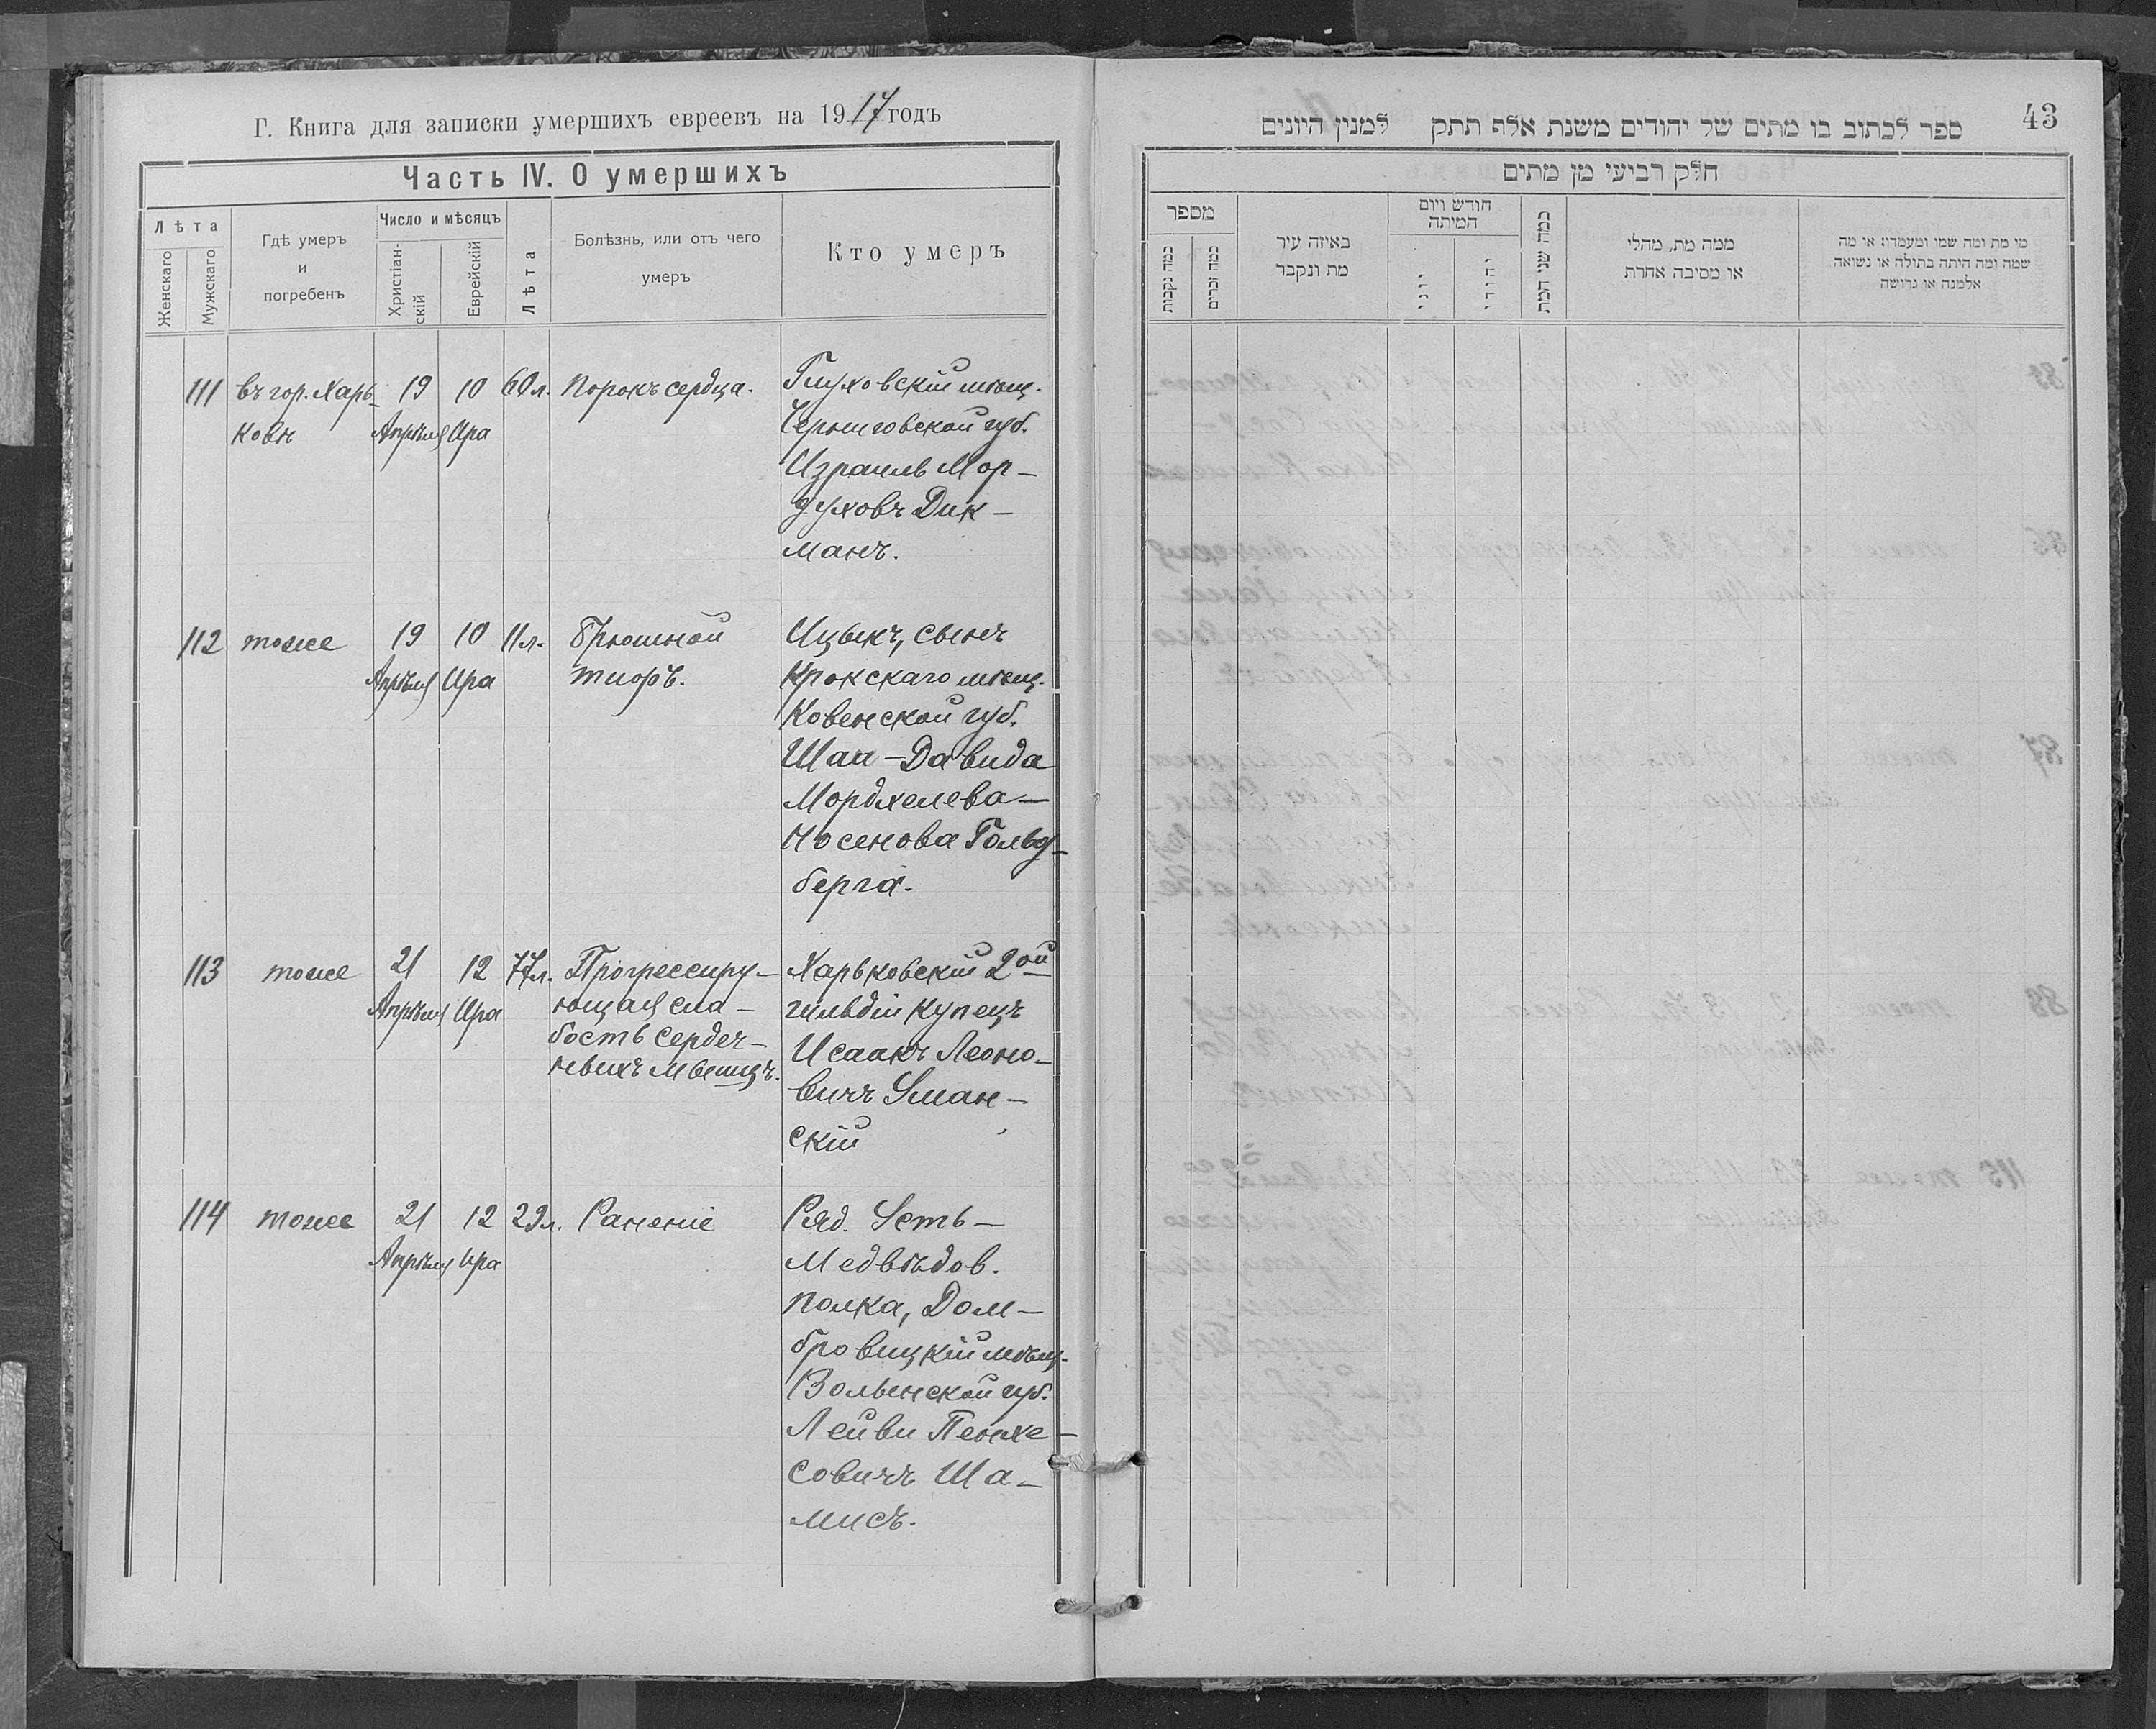 Г. Книга для записки умершихъ евреевъ на 1917 годъ
Часть IV. О умершихъ
Лѣта
Женскаго
Мужскаго
Гдѣ умеръ
и
погребенъ
Число и мѣсяцъ
Христіан-
скій
Еврейскій
Лѣта
Болѣзнь, или отъ чего
умеръ
Кто умеръ
111 въ гор. Харь-
ковѣ
19
Апрѣля
10
Ира
60 л.
Порокъ сердца.
Глуховскій мѣщ.
Черниговской губ.
Израиль Мор-
духовъ Дик-
манъ.
112 тоже
19
Апрѣля
10
Ира
11 л.
Брюшной
тифъ.
Ицыкъ, сынъ
Крокскаго мѣщ.
Ковенской губ.
Шаи-Давида
Мордхелева-
Носенова Гольд-
берга.
113 тоже
21
Апрѣля
12
Ира
77 л.
Прогрессиру-
ющая сла-
бость сердеч-
ныхъ мышцъ.
Харьковскій 2ой
гильдіи купецъ
Исаакъ Леоно-
вичъ Уман-
скій
114 тоже
21
Апрѣля
12
Ира
29 л.
Раненіе
Ряд. Усть-
Медвѣдов.
полка, Дом-
бровицкій мѣщ.
Волынской губ.
Лейви Пенхе-
совичъ Ша-
мисъ.
43
ספר לכתוב בו מתים של יהודים משנת אלף תתק למנין היונים
חלק רביעי מן מתים
מספר
כמה נקבות
כמה זכרים
באיזה עיר
מת ונקבר
חודש ויום
המיתה
יוני
יהודי
כמה שני המת
ממה מת, מהלי
או מסיבה אחרת
מי מת ומה שמו ומעמדו: או מה
שמה ומה היתה בתולה או נשואה
אלמנה או גרושה